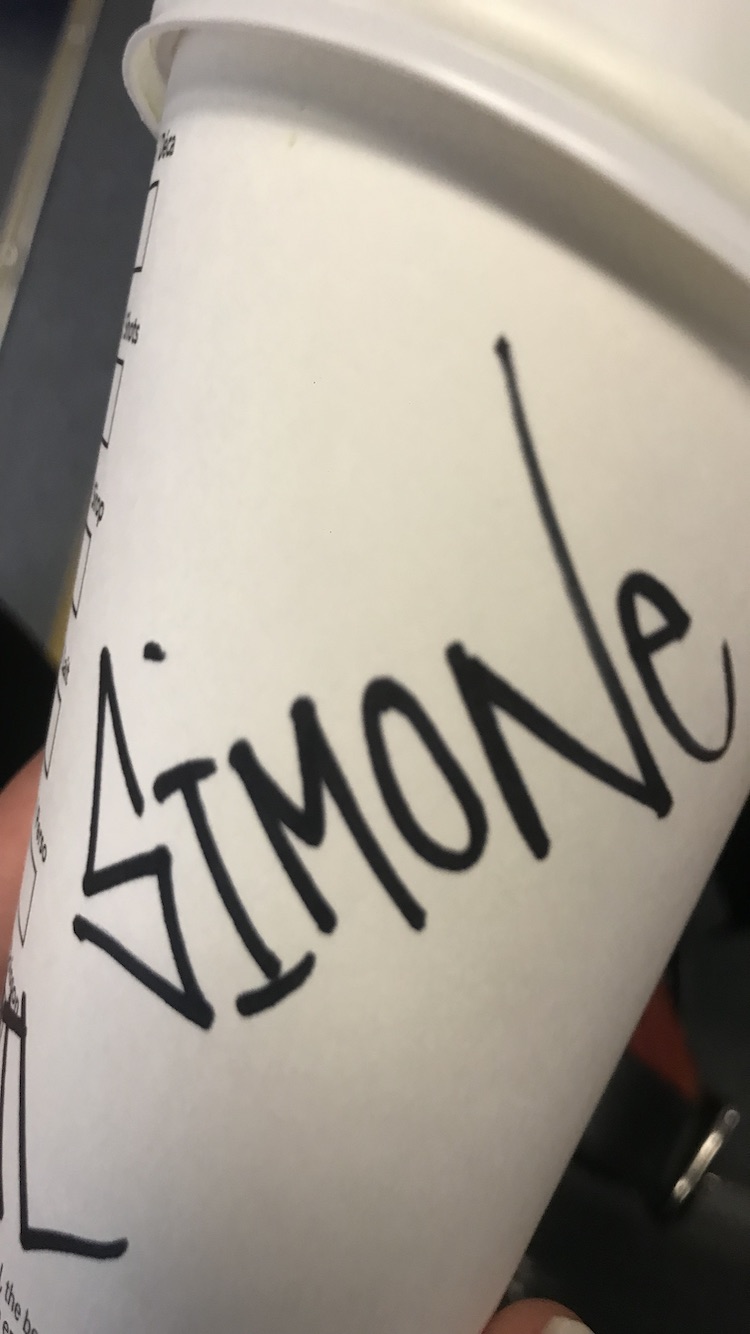 Decaf
Shots
Syrup
Milk
SIMONe
the be